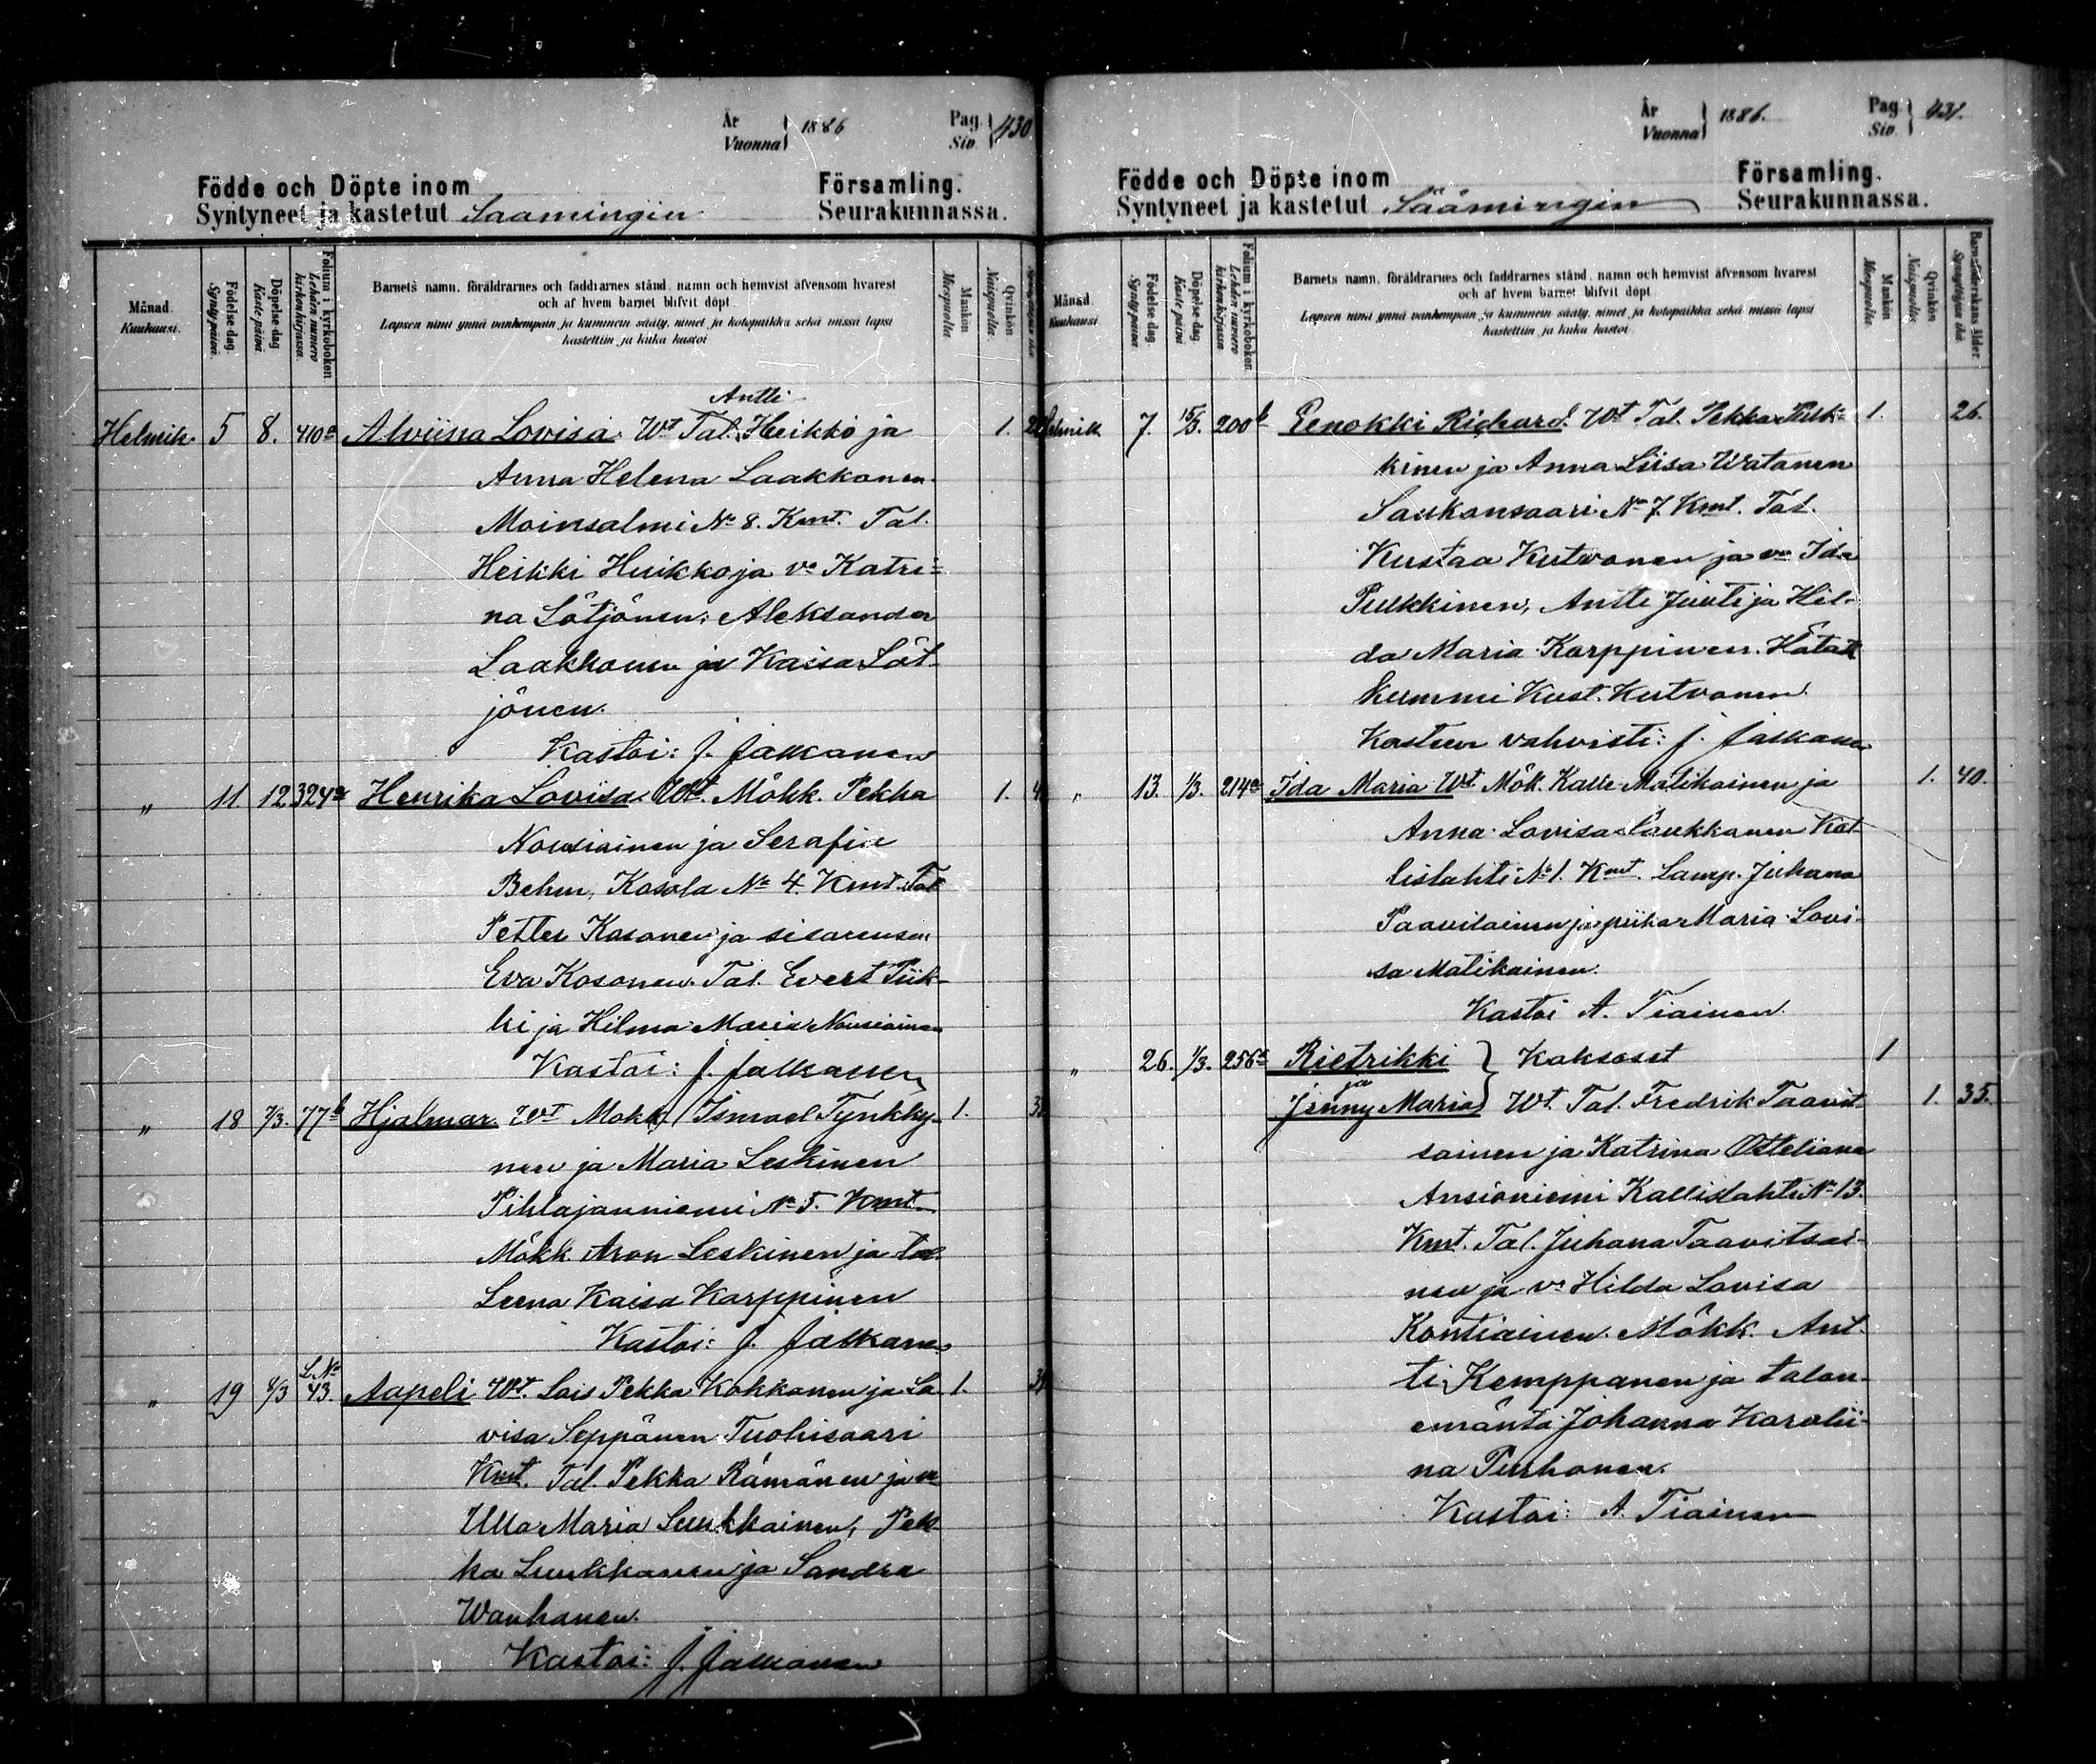 År
Vuonna
1886
Pag.
Siv.
430
Födde och Döpte inom Församling.
Syntyneet ja kastetut Saamingin Seurakunnassa.
Månad. Kuukausi.
Födelse dag. Synty päivä.
Döpelse dag Kaste päivä
Folium i kyrkoboken Lehden numero kirkonkirjassa.
Barnets namn, föräldrarnes och faddrarnes stånd, namn och hemvist äfvensom hvarest
och af hvem barnet blifvit döpt
Lapsen nimi ynnä vanhempain ja kummein sääty, nimet ja kotopaikka sekä missä lapsi
kastettiin ja kuka kastoi
Mankön Miespuolia
Qvinkön Naispuolia.
Antti
Helmik. 5 8. 410a Alviina Lovisa. Wt Tal. Heikko ja 1.
Anna Helena Laakkonen.
Moinsalmi No 8. Kmt. Tal.
Heikki Huikko ja vo Katri=
na Sötjönen; Aleksander
Laakkonen ja Kaisa Söt
jönen.
Kastoi: J. Jalkanen
" 11 12 324a Henrika Lovisa. Wt. Mökk. Pekka 1. 4
Nousiainen ja Serafia
Behm, Kosola No 4 Kmt. Tal
Petter Kosonen ja sisarensa
Eva Kosonen. Tal. Evert Piik-
ki ja Hilma Maria Nousiainen
Kastoi: J. Jalkanen
" 18 7/3. 77b Hjalmar. Wt Mökk. Ismael Tynkky- 1. 3
nen ja Maria Leskinen
Pihlajanniemi No 5. Kmt.
Mökk Aron Leskinen ja tal
Leena Kaisa Karppinen
Kastoi: J. Jalkanen
L No
" 19 4/3 43. Aapeli Wt. Lois Pekka Kokkonen ja Lo 1. 3
visa Seppänen Tuohisaari
Kmt. Tal. Pekka Rämänen ja v
Ulla Maria Luukkainen, Pek-
ka Luukkanen ja Sandra
Wanhanen.
Kastoi: J. Jalkanen
År
Vuonna
1886.
Pag
Siv.
431.
Födde och Döpte inom Församling.
Syntyneet ja kastetut Säämingin Seurakunnassa.
Månad. Kuukausi
Födelse dag. Synty päivä
Döpelse dag. Kaste päivä
Folium i kyrkoboken Lehden numero kirkonkirjassa
Barnets namn, föräldrarnes och faddrarnes stånd, namn och hemvist äfvensom hvarest
och af hvem barnet blifvit döpt
Lapsen nimi ynnä vanhempain ja kummein sääty, nimet ja kotopaikka sekä missä lapsi
kastettiin ja kuka kastoi
Mankön Miespuolia
Qvinkön Naispuolia.
Barnaföderskans ålder Synnyttäjän ikä
Helmik 7. 15/3. 200b Eenokki Richard. Wt Tal. Pekka Pulk- 1. 26.
kinen ja Anna Liisa Watanen
Saukonsaari No 7. Kmt. Tal.
Kustaa Kutvonen ja vo Ida
Pulkkinen, Antti Juuti ja Hil-
da Maria Karppinen. Hätä
kummi Kust. Kutvonen.
Kasteen vahvisti: J. Jalkanen
" 13. 1/3. 214a Ida Maria Wt Mök. Kalle Matikainen ja 1. 40.
Anna Lovisa Laukkanen Kal
lislahti No 1. Kmt. Lamp. Juhana
Paavilainen ja piika Maria Lovi-
sa Matikainen.
Kastoi A. Tiainen.
" 26. 1/3. 256a Rietrikki } Kaksoset 1
ja
Jenny Maria Wt. Tal. Fredrik Taavit 1. 35.
sainen ja Katrina Otteliana
Ansioniemi Kallislahti No 13.
Kmt. Tal. Juhana Taavitsai-
nen ja vo Hilda Lovisa
Kontiainen. Mökk. Ant-
ti Kemppanen ja talon-
emäntä Johanna Karolii-
na Purhonen.
Kastoi: A. Tiainen